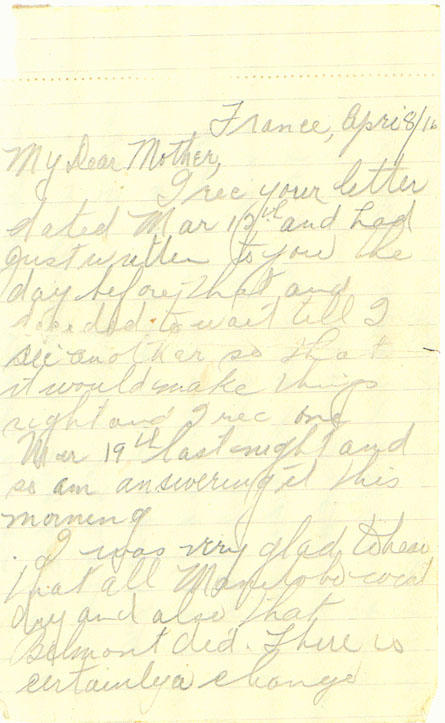 France, Apri 8/16
My Dear Mother,
I rec your letter
dated Mar 12th and had
just written to you the
day before that and
decided to wait till I
rec another so that
it would make things
right and I rec one
Mar 19th last night and
so am answering it this
morning
I was very glad to hear
that all Manitoba went
dry and also that
Belmont did. There is
certainly a change